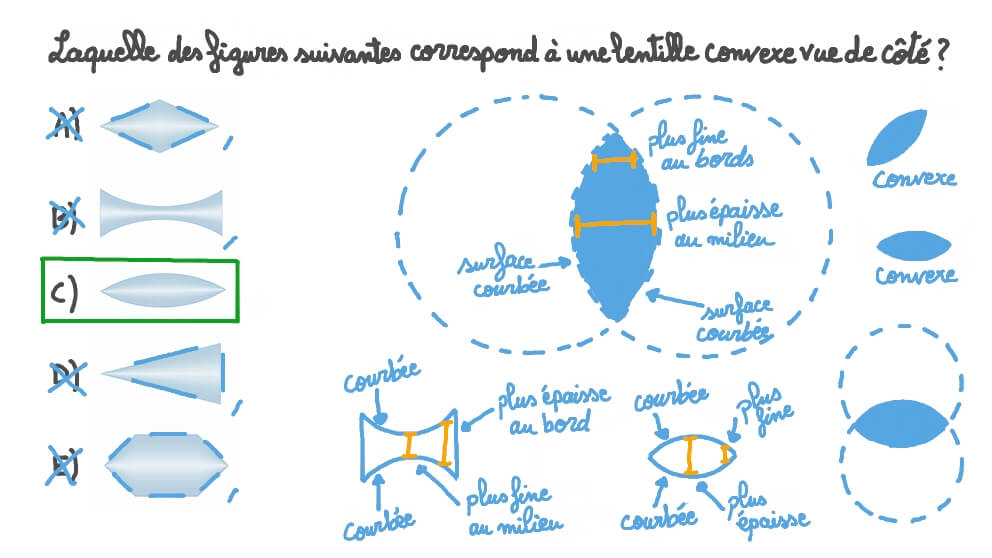 Laquelle des figures suivantes correspond à une lentille convexe vue de côté ?
A)
B)
C)
D)
E)
plus fine
au bords
plus épaisse
au milieu
surface
courbée
surface
courbée
convexe
convexe
courbée
plus épaisse
au bord
courbée
plus fine
au milieu
courbée
plus
fine
courbée
plus
épaisse